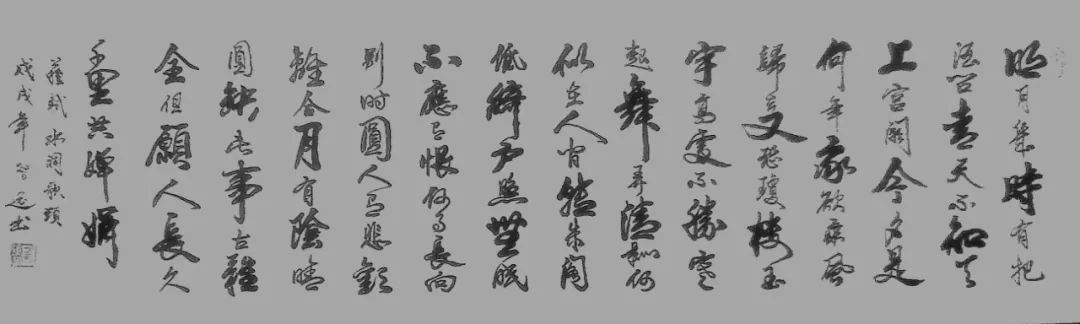 明月幾時有把
酒问青天不知天
上宫闕今夕是
何年我欲乘風
歸去又恐瓊樓玉
宇高處不勝寒
起舞弄清影何
似在人间轉朱閣
低綺户照無眠
不應有恨何事長向
别时圓人有悲歡
離合月有陰晴
圓缺此事古難
全但願人長久
千里共嬋娟
蘇軾水调歌頭
戊戌年书